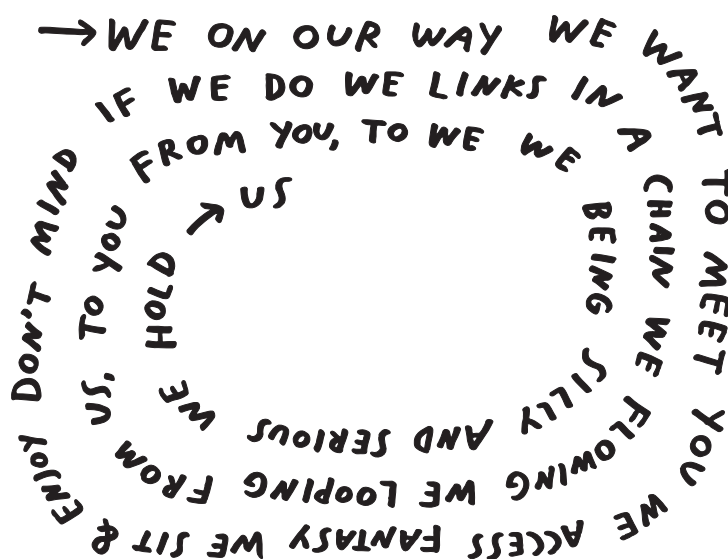 → WE ON OUR WAY WE WANT TO MEET YOU WE ACCESS FANTASY WE SIT & ENJOY DON'T MIND
IF WE DO WE LINKS IN A CHAIN WE FLOWING WE LOOPING FROM US, TO YOU
FROM YOU, TO WE WE BEING SILLY AND SERIOUS WE HOLD
→ US